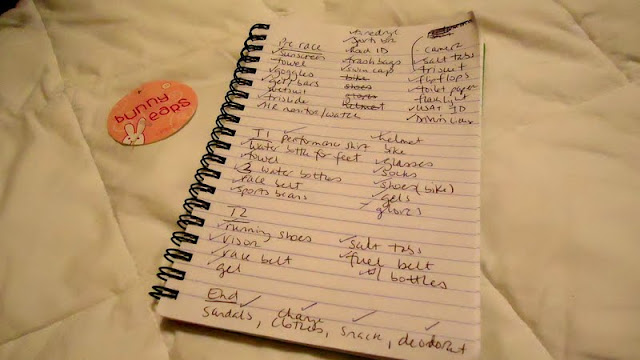 bunny
ears
Pre race
sunscreen
towel
goggles
gels/bars
wetsuit
trislide
HR monitor/watch
sports bra
road ID
trash bags
swim caps
bike
shoes
helmet
camera
salt tabs
trisuit
flip flops
toilet paper
flashlight
USAT ID
T1
performance shirt
water bottle for feet
towel
2 water bottles
race belt
sports beans
helmet
bike
glasses
socks
shoes (bike)
gels
gloves
T2
running shoes
visor
race belt
gel
salt tabs
fuel belt
w/ bottles
End
sandals, change clothes, snack, deodorant